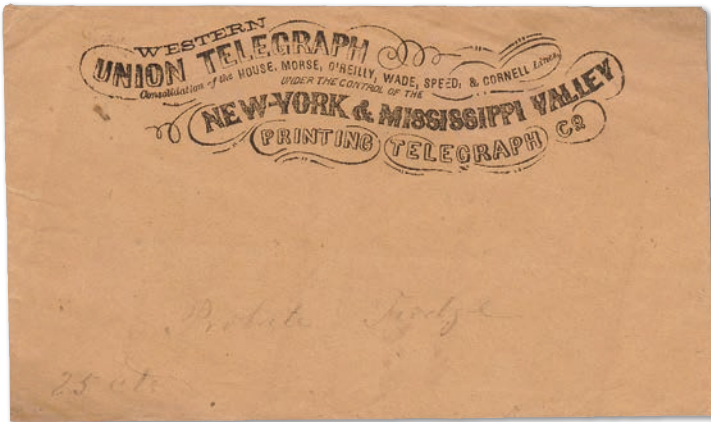 WESTERN
UNION TELEGRAPH
Consolidation of the HOUSE, MORSE, O'REILLY, WADE, SPEED, & CORNELL Lines,
UNDER THE CONTROL OF THE
NEW-YORK & MISSISSIPPI VALLEY
PRINTING TELEGRAPH CO
Probate Judge
25 cts